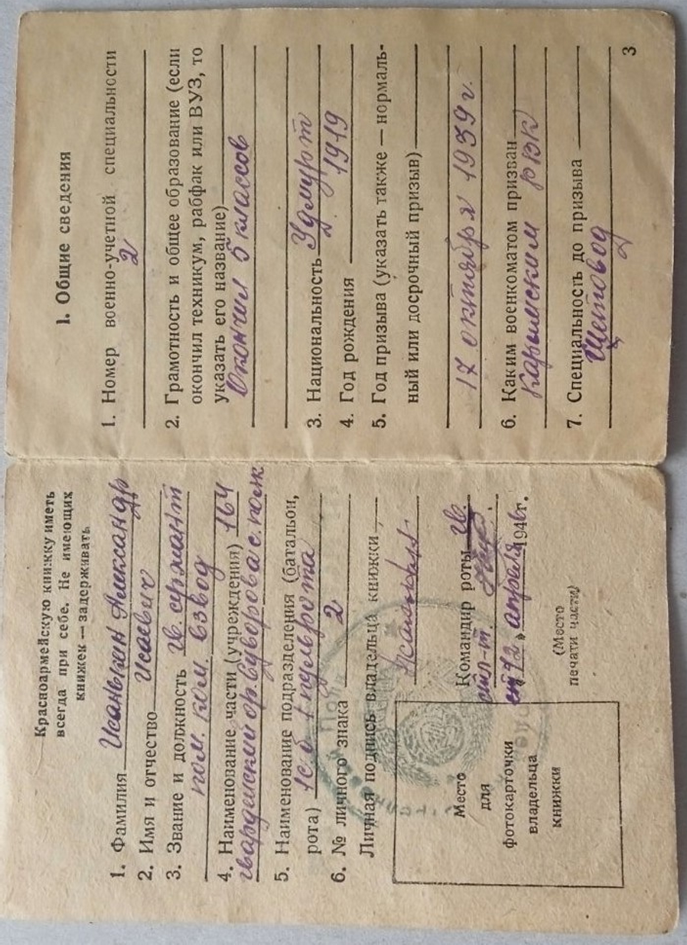 Красноармейскую книжку иметь
всегда при себе. Не имеющих
книжек — задерживать
1. Фамилия Исанькин Александр
2. Имя и отчество Исаевич
3. Звание и должность Гв. сержант
пом. ком. взвод
4. Наименование части (учреждения) 164
гвардейский ор. Суворова с. полк
5. Наименование подразделения (батальон,
рота) 1 с.б 1 пульрота
6. № личного знака 2
Личная подпись владельца книжки
Командир роты Гв.
12 апреля 1946г.
(Место
печати части)
Место
для
фотокарточки
владельца
книжки
1. Общие сведения
1. Номер военно-учетной специальности
2
2. Грамотность и общее образование (если
окончил техникум, рабфак или ВУЗ, то
указать его название)
Окончил 5 классов
3. Национальность Удмурт
4. Год рождения 1919
5. Год призыва (указать также — нормаль-
ный или досрочный призыв)
17 октября 1939г.
6. Каким военкоматом призван
Карымским РВК
7. Специальность до призыва
Щетовод
3